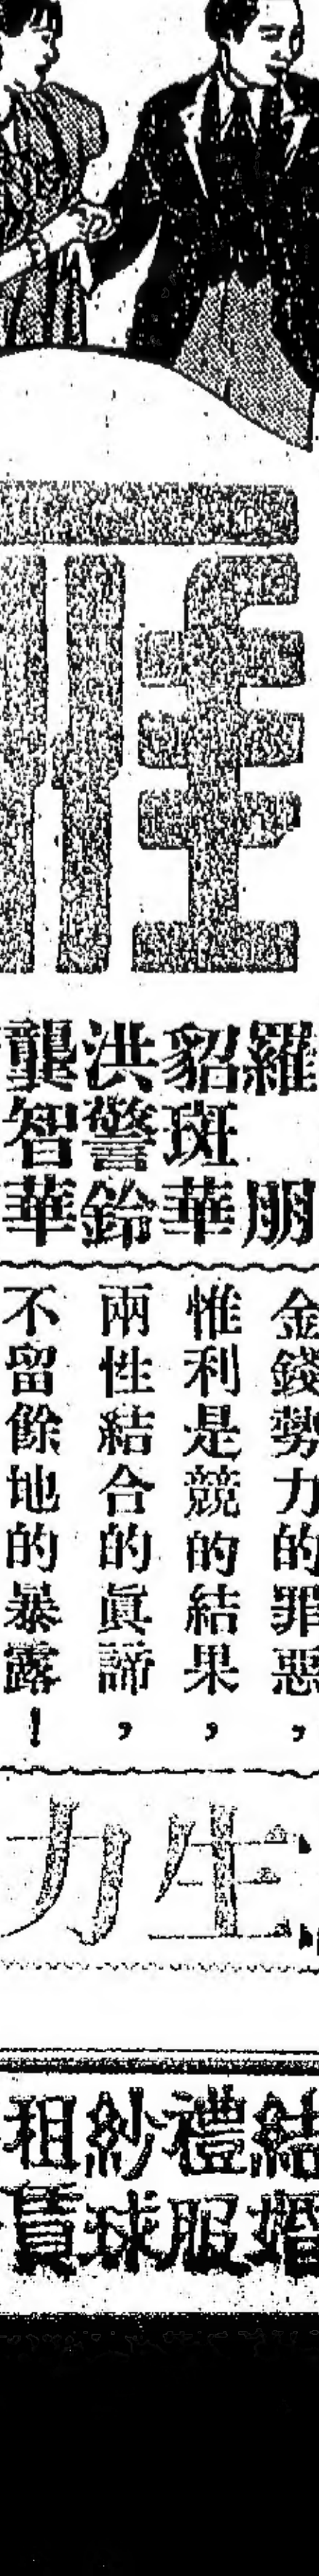 羅朋
貂斑華
洪警鈴
龔智華
金錢勢力的罪惡，
惟利是競的結果，
兩性結合的眞諦，
不留餘地的暴露！
生力
結婚
禮服
紗球
租賃